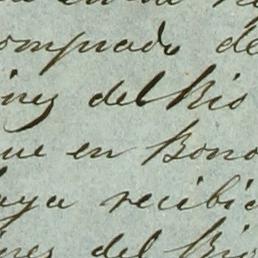 omprado de
ines del Rio
que en Bono
haya recibi
ines del Rio